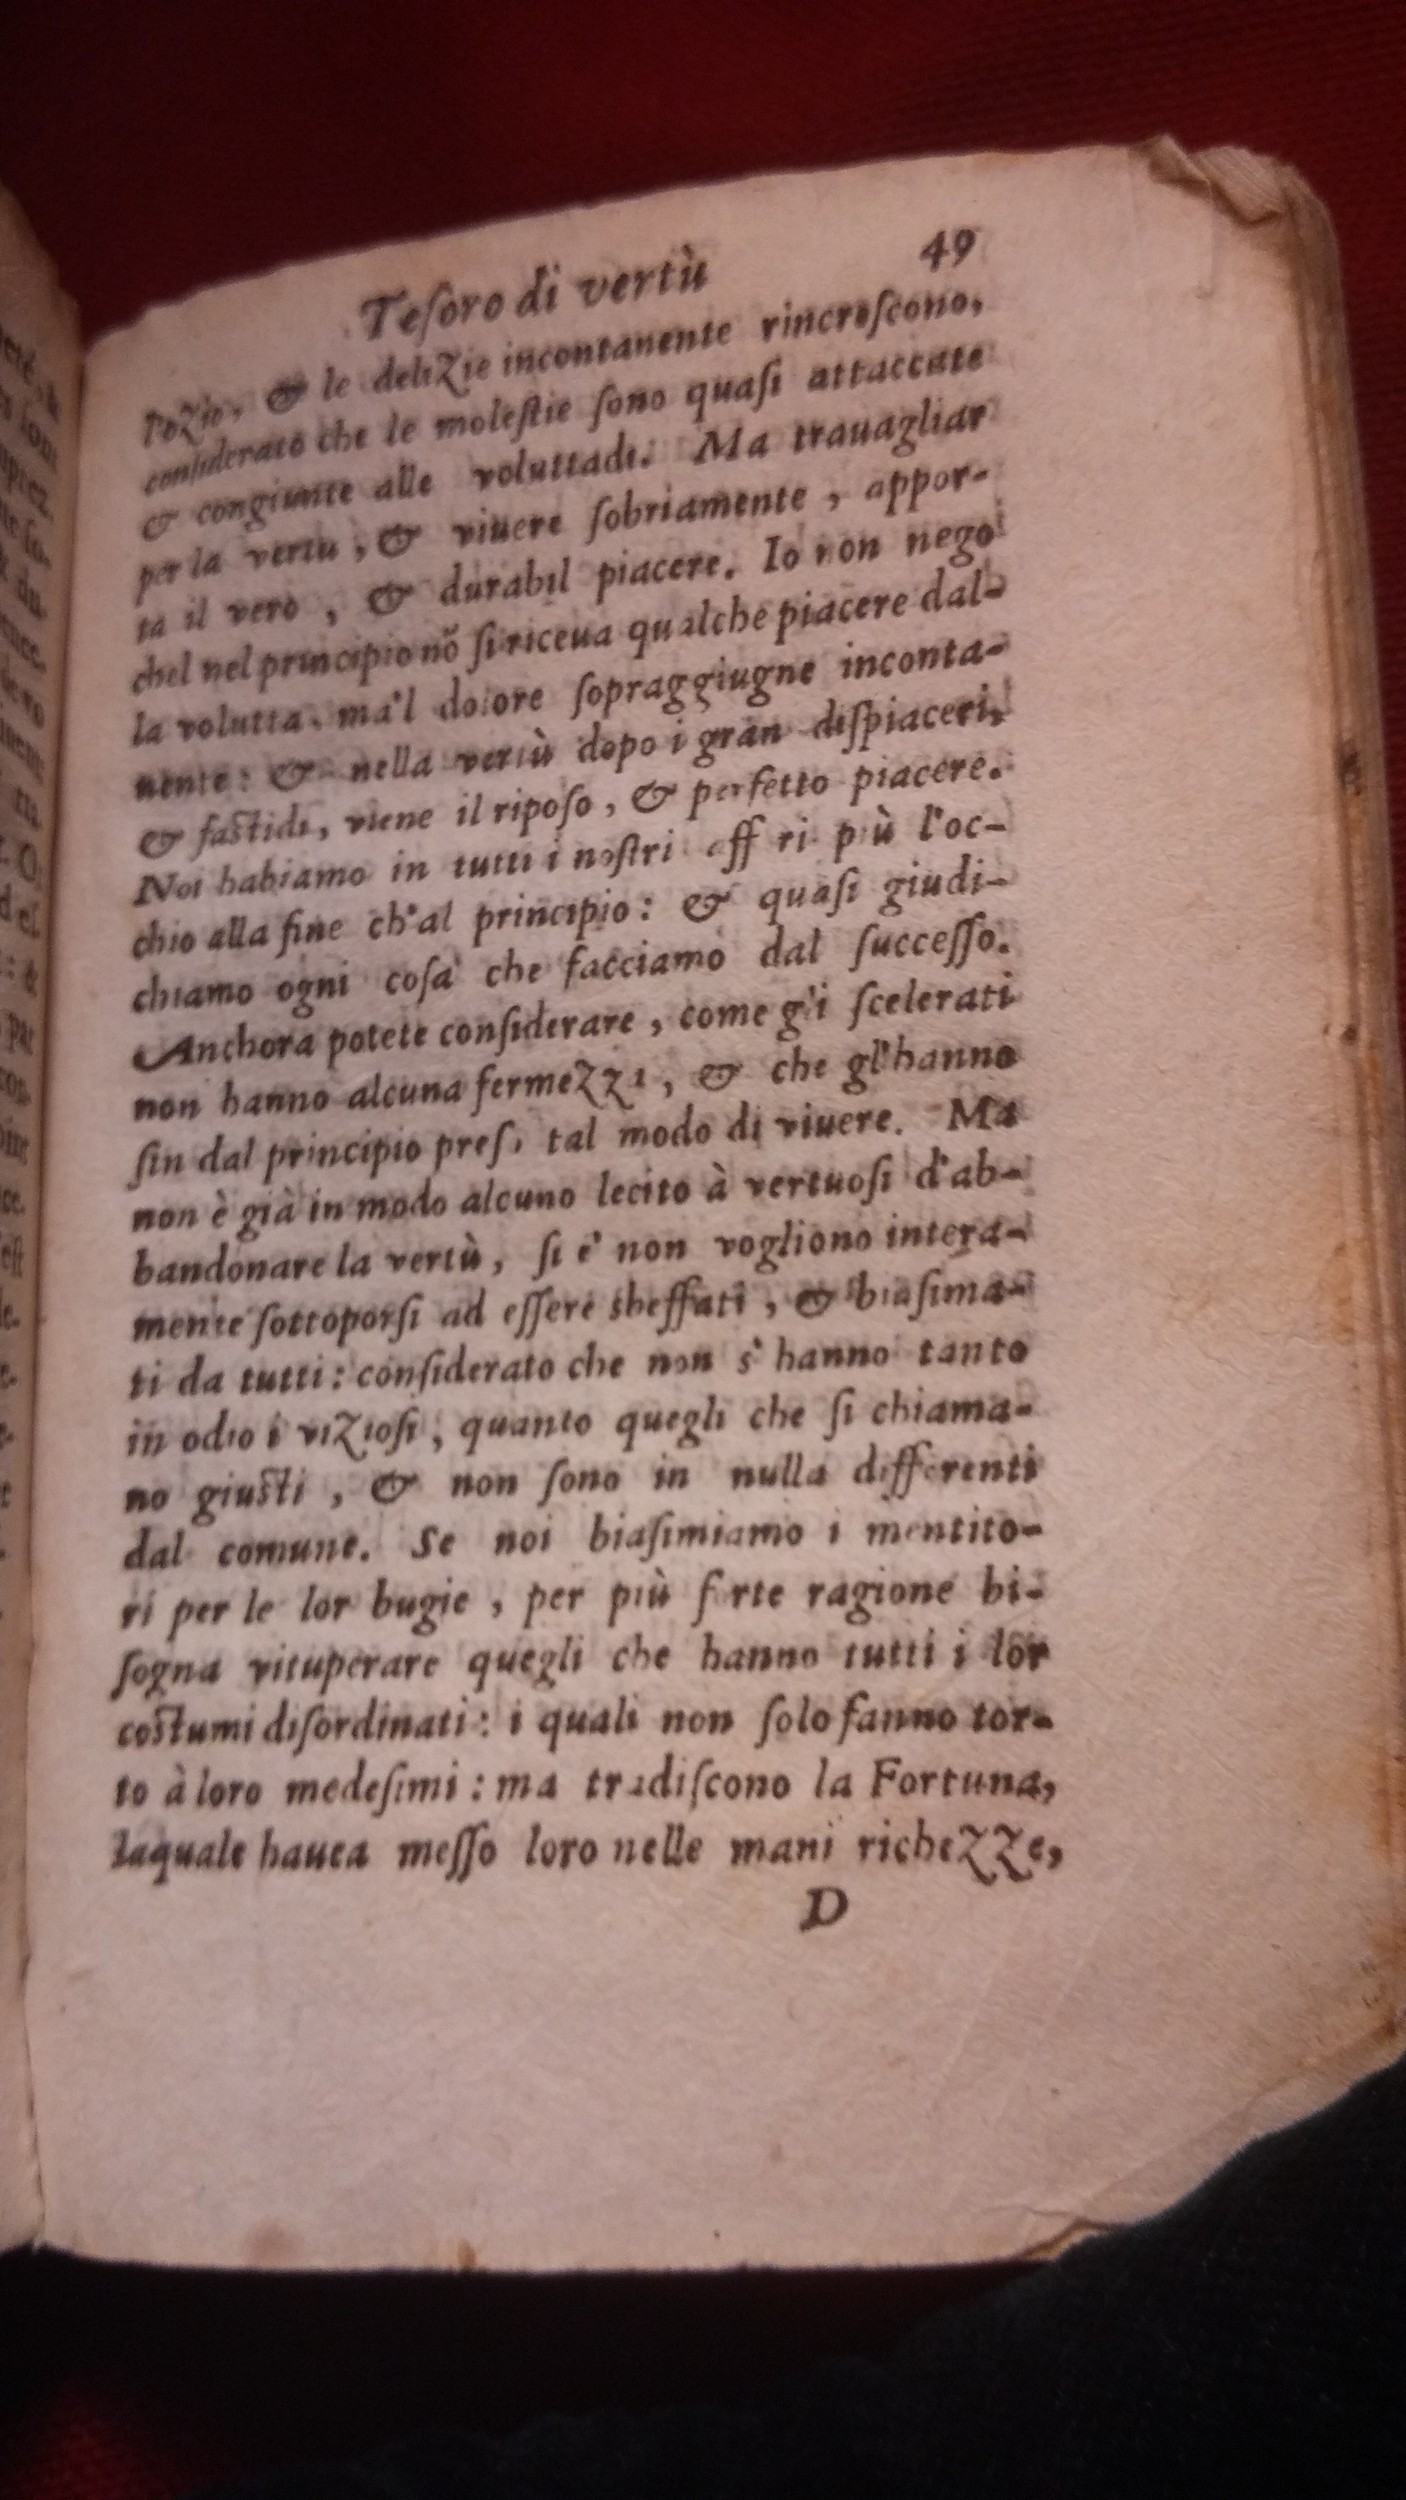 Teſoro di vertù 49
l'oZio, & le deliZie incontanente rincreſcono,
conſiderato che le moleſtie ſono quaſi attaccate
& congiunte alle voluttadi. Ma trauagliar
per la vertù, & viuere ſobriamente, appor-
ta il vero, & durabil piacere. Io non nego
chel nel principio nõ ſi riceua qualche piacere dal-
la volutta. ma'l dolore ſopraggiugne inconta-
nente: & nella vertù dopo i gran diſpiaceri,
& faſtidi, viene il ripoſo, & perfetto piacere.
Noi habiamo in tutti i noſtri aff ri più l'oc-
chio alla fine ch'al principio: & quaſi giudi-
chiamo ogni coſa che facciamo dal ſucceſſo.
Anchora potete conſiderare, come g'i ſcelerati
non hanno alcuna fermeZZa, & che gl'hanno
ſin dal principio preſo tal modo di viuere. Ma
non è già in modo alcuno lecito à vertuoſi d'ab-
bandonare la vertù, ſi e' non vogliono intera-
mente ſottoporſi ad eſſere sbeffati, & biaſima-
ti da tutti: conſiderato che non s' hanno tanto
in odio i viZioſi, quanto quegli che ſi chiama-
no giuſti, & non ſono in nulla differenti
dal comune. Se noi biaſimiamo i mentito-
ri per le lor bugie, per più forte ragione bi-
ſogna vituperare quegli che hanno tutti i lor
coſtumi diſordinati: i quali non ſolo fanno tor-
to à loro medeſimi: ma tradiſcono la Fortuna,
laquale hauea meſſo loro nelle mani richeZZe,
D